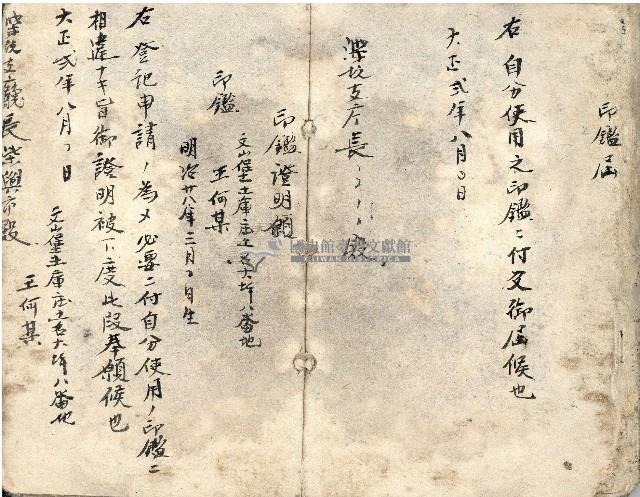 印鑑届
右自分使用之印鑑ニ付交御届候也
大正弐年八月〇日
深坑支庁長〻〻〻殿
印鑑證明願
文山堡土庫庄土名大坪八番地
王何某
印鑑
明治廿八年三月〇日生
右登記申請ノ為メ必要ニ付自分使用ノ印鑑ニ
相違ナキ旨御證明被下度此段奉願候也
大正弐年八月〇日
文山堡土庫庄土名大坪八番地
王何某
深坑支廳長 殿
國史館臺灣文獻館
TAIWAN HISTORICA